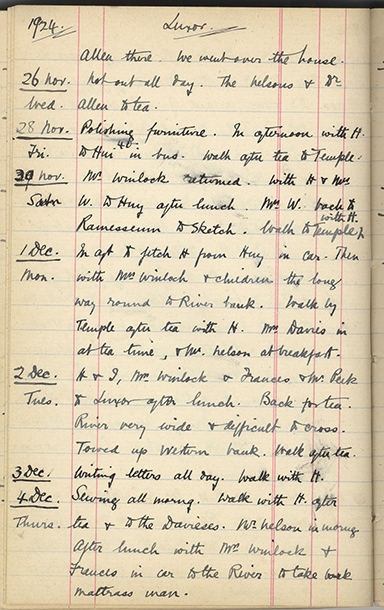 1924. Luxor.
Allen there. We went over the house.
26 Nov. Not out all day. The Nelsons & Dr
Wed. Allen to tea.
28 Nov. Polishing furniture. In afternoon with H.
Fri. to Hui in bus. Walk after tea to Temple.
29 Nov. Mr Winlock returned. With H & Mrs
W. to Huy after lunch. Mrs W. back to
Ramesseum to Sketch. Walk to Temple with H.
1 Dec. In aft to fetch H from Huy in car. Then
Mon. with Mrs Winlock & children the long
way round to River bank. Walk by
Temple after tea with H. Mrs Davies in
at tea time, & Mr. Nelson at breakfast.
2 Dec. H & I, Mrs Winlock & Frances & Mr Peck
Tues. to Luxor after lunch. Back for tea.
River very wide & difficult to cross.
Towed up Western bank. Walk after tea.
3 Dec. Writing letters all day. Walk with H.
4 Dec. Sewing all morng. Walk with H. after
Thurs. tea & to the Davieses. Mr Nelson in morng
After lunch with Mrs Winlock &
Frances in car to the River to take
mattrass man.